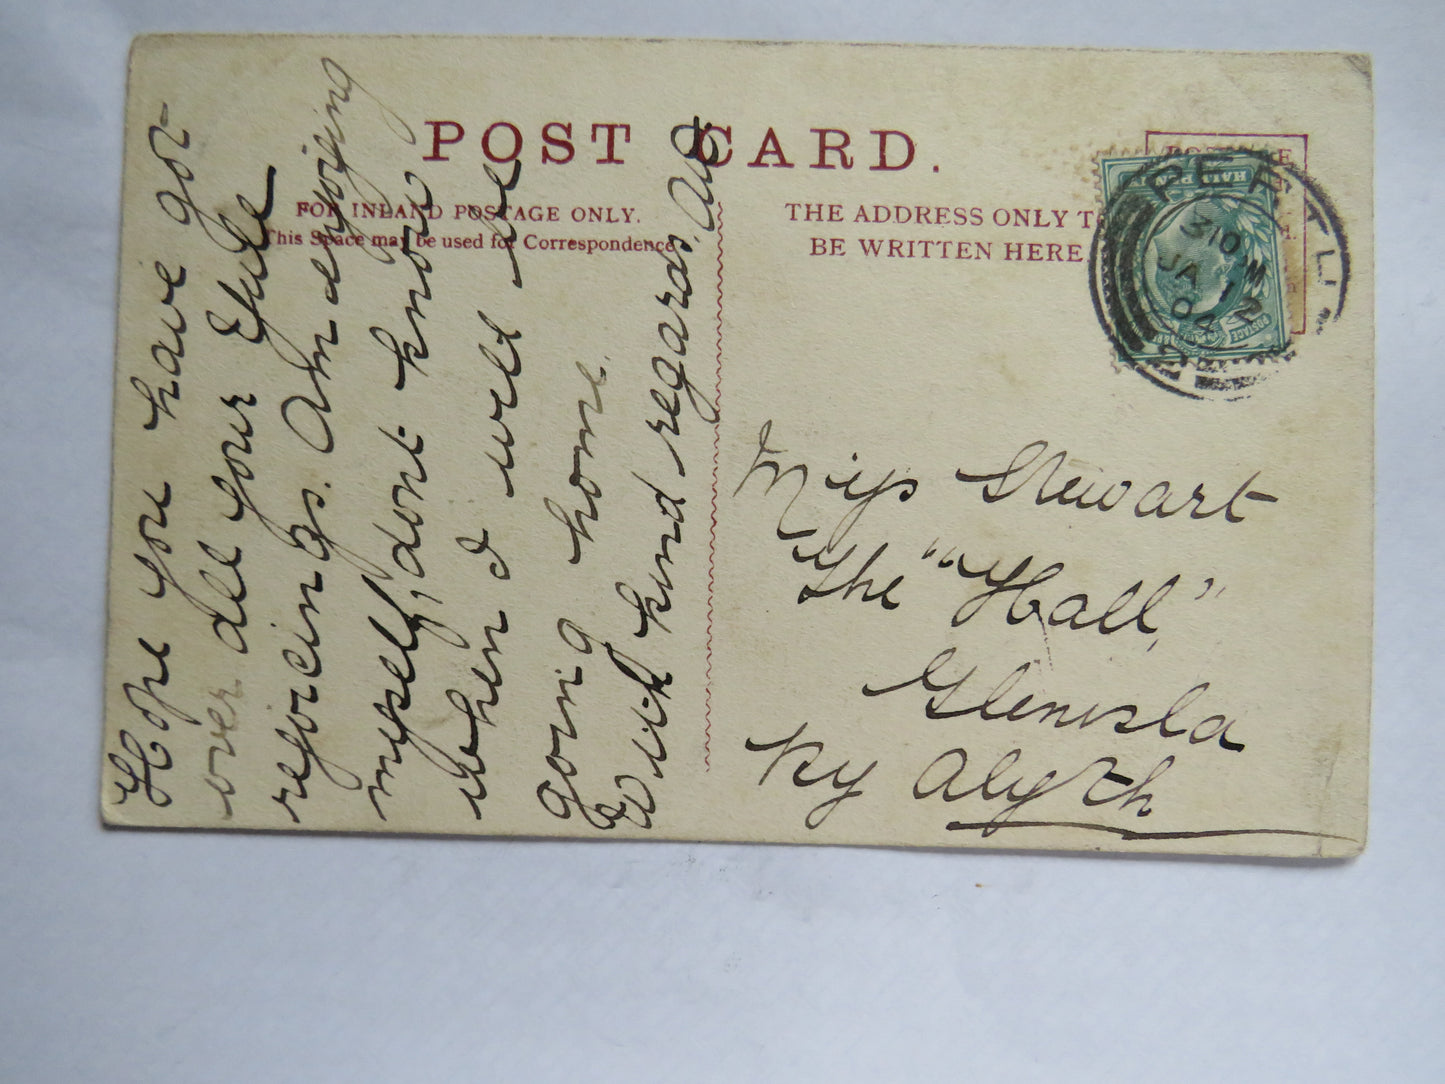 POST CARD.
FOR INLAND POSTAGE ONLY.
This Space may be used for Correspondence
THE ADDRESS ONLY TO
BE WRITTEN HERE.
PERTH
310 PM
JA 12
04
Hope you have got
over all your Yule
rejoicings. Am enjoying
myself, dont know
when I will be
going home.
With kind regards,
Miss Stewart
The "Hall",
Glenisla
by Alyth